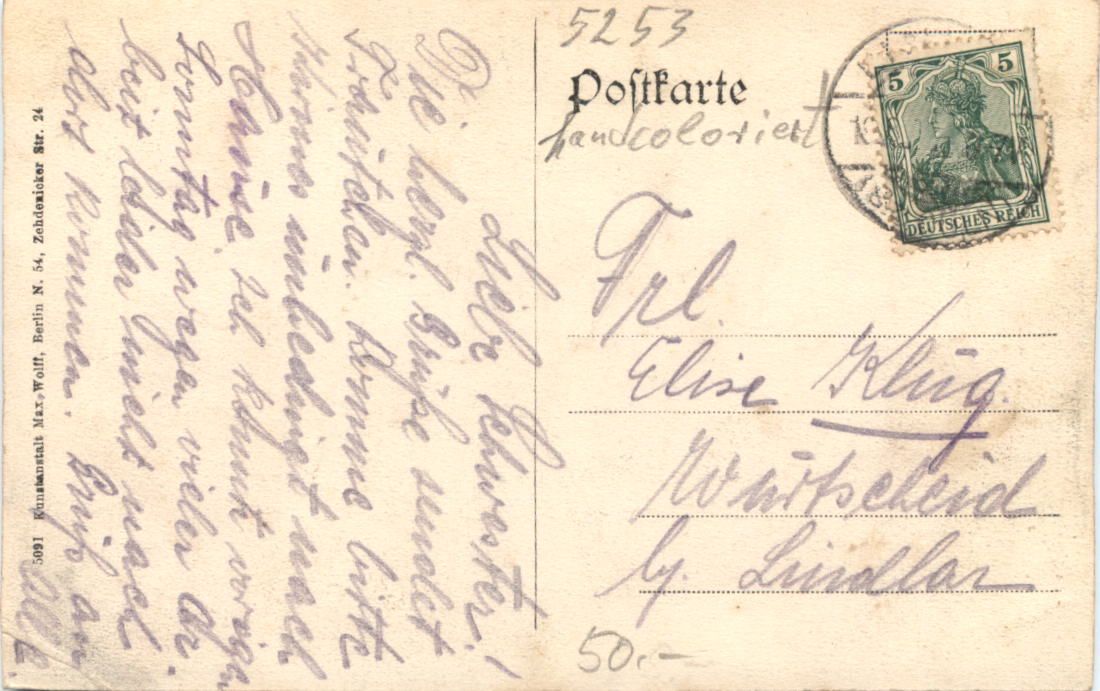 5253
Postkarte
handcoloriert
5 5
DEUTSCHES REICH
Liebe Schwester!
Die herzl. Grüße sendet
Fränzchen. Komme bitte
unbedingt nach
Hause. Ich konnt vorigen
Sonntag wegen vieler Ar-
beit leider nicht nach
dort kommen. Gruß an
Alle
Frl.
Elise Klug.
Würtscheid
by. Lindlar
50.-
5091 Kunstanstalt Max Wolff, Berlin N. 54, Zehdenicker Str. 24